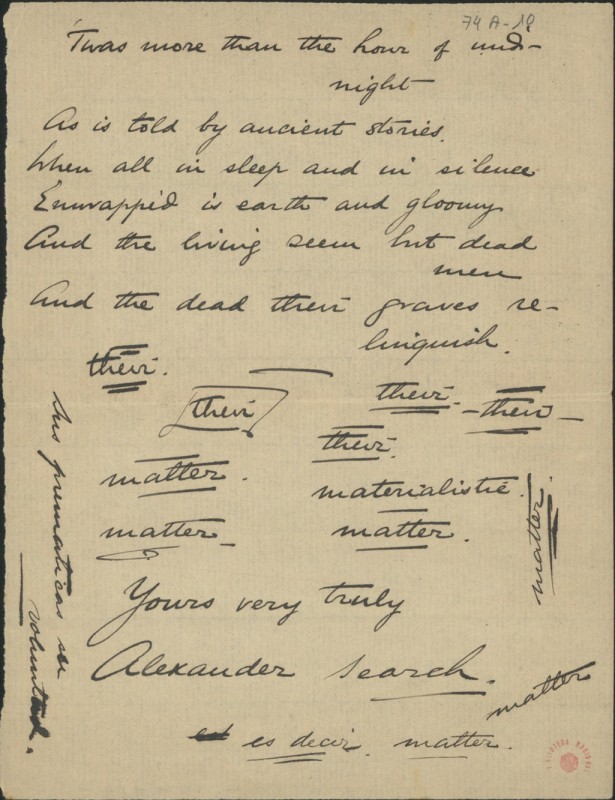 74 A-18
'Twas more than the hour of mid-
night
As is told by ancient stories.
When all in sleep and in silence
Enwrapped is earth and gloomy
And the living seem but dead
men
And the dead their graves re-
linquish.
their.
their
their
- their -
their.
matter.
materialistic.
matter
matter
matter.
sus prematicas su
voluntad.
Yours very truly
Alexander Search.
matter
es decir. matter.